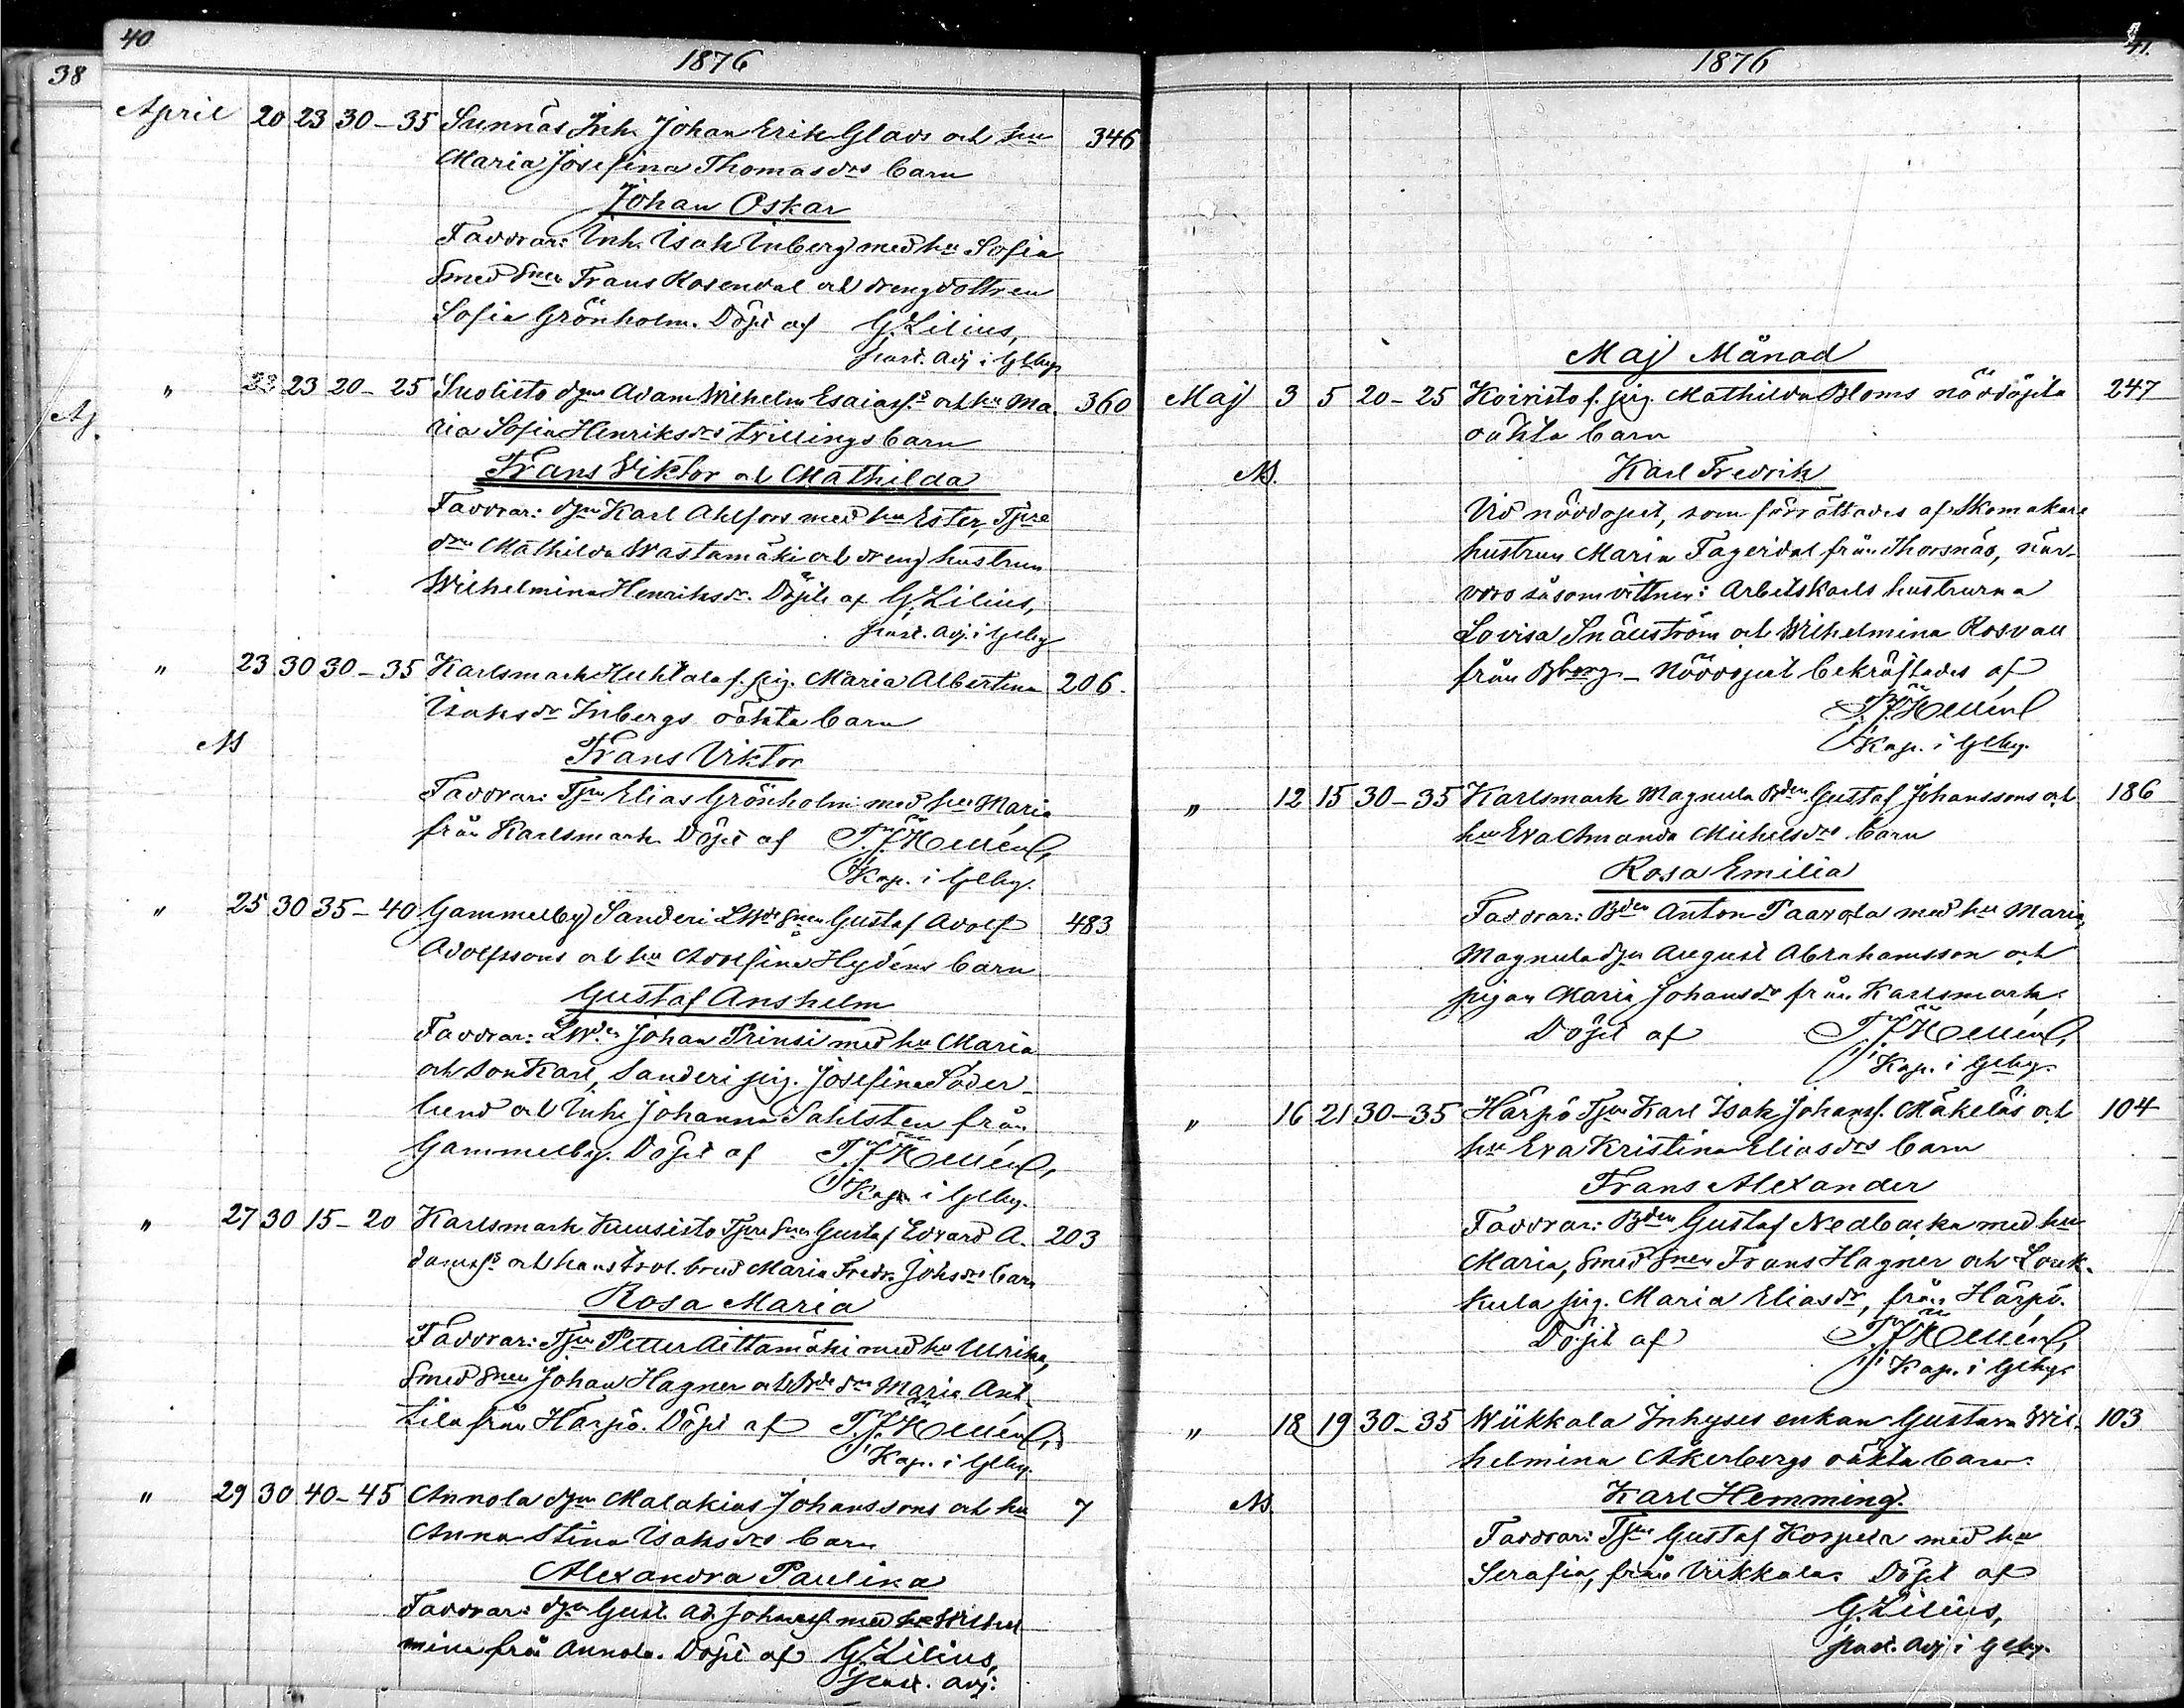 40
1876
38
April 20 23 30-35 Sunnäs Inh. Johan Erik Glads och hu 346
Maria Josefina Thomasdrs barn
Johan Oskar
Faddrar: Inh. Isak Inberg med hu Sofia
Smed Snen Frans Rosendal och drengdottren
Sofia Grönholm. Döpt af G. Lilius,
past. adj i Glby
" 23 23 20-25 Suolisto Adam Wilhelm Esaiass. och hu Ma- 360
ria Sofia Henriksdrs tvillingsbarn
Frans Viktor och Mathilda
Faddrar: Karl Ahlfors med hu Ester, Tjre
drn Mathilda Wastamäki och dreng hustrun
Wilhelmina Henriksdr. Döpte af G. Lilius,
past. adj. i Glby
Aj.
" 23 30 30-35 Karlsmark Huhtala f. pig. Maria Albertina 206.
Isaksdr Inbergs oäkta barn
Frans Viktor
Faddrar: Tjn Elias Grönholm med hu Maria
från Karlsmark. Döpt af
Kap. i Glby.
" 25 30 35-40 Gammelby Sanderi Gustaf Adolf 483
Adolfssons och hu Adolfina Hydéns barn
Gustaf Anshelm
Faddrar: Johan Prinsi med hu Maria
och son Karl, Sanderi pig. Josefina Söder-
lund och Inh. Johanna Sahlsten från
Gammelby. Döpt af
Kap. i Glby.
" 27 30 15-20 Karlsmark Kuusisto Tjre Snen Gustaf Edvard A- 203
damss och hans trol. brud Maria Fredr. Johsdrs barn
Rosa Maria
Faddrar: Tjn Petter Aittamäki med hu Ulrika,
Smed Snen Johan Hagner och Bde drn Maria Ant-
tila från Härpö. Döpt af
Kap. i Glby.
" 29 30 40-45 Annola Malakias Johanssons och hu 7
Anna Stina Isaksdrs barn
Alexandra Paulina
Faddrar: Gust. Ad. Johanss. med hu Wilhel
mina från Annola. Döpt af G. Lilius,
past. adj:
41.
1876
Maj Månad
Maj 3 5 20-25 Koivisto f. pig. Mathilda Bloms nöddöpta 247
oäkta barn
Karl Fredrik
Vid nöddopet, som förrättades af Skomakare
hustrun Maria Fagerdal från Thorsnäs, när-
voro såsom vittnen: Arbetskarls hustrurna
Lovisa Snällström och Wilhelmina Rosvall
från Bborg – Nöddopet bekräftades af
Kap. i Glby.
" 12 15 30-35 Karlsmark Magnula Bden Gustaf Johanssons och 186
hu Eva Amanda Michelsdrs barn
Rosa Emilia
Faddrar: Bden Anton Paavola med hu Maria,
Magnula August Abrahamsson och
pigan Maria Johansdr från Karlsmark.
Döpt af
Kap. i Glby.
" 16 21 30-35 Härpö Tjn Karl Isak Johanss. Mäkeläs och 104
hu Eva Kristina Eliasdrs barn
Frans Alexander
Faddrar: Bden Gustaf Nedbacka med hu
Maria, Smed Snen Frans Hagner och Louk-
kula pig. Maria Eliasdr, från Härpö.
Döpt af
Kap. i Glby.
" 18 19 30-35 Wiikkala Inhyses enkan Gustava Wil- 103
helmina Åkerbergs oäkta barn.
Karl Hemming.
Faddrar: Tjn Gustaf Korpela med hu
Serafia, från Viikkala. Döpt af
G. Lilius,
past. adj i Glby.